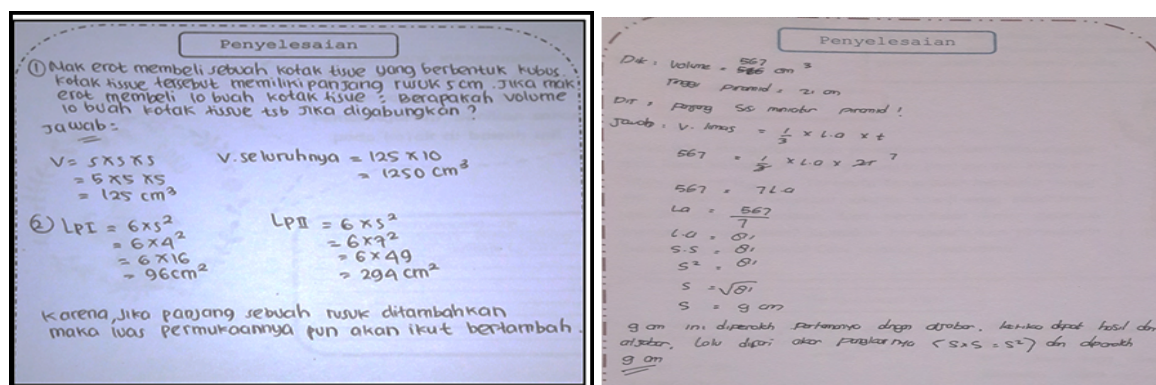 Penyelesaian
① Mak erot membeli sebuah kotak tisue yang berbentuk kubus.
kotak tissue tersebut memiliki panjang rusuk 5 cm. Jika mak
erot membeli 10 buah kotak tisue : Berapakah volume
10 buah kotak tissue tsb jika digabungkan ?
Jawab :
V = s x s x s
= 5 x 5 x 5
= 125 cm³
V. seluruhnya = 125 x 10
= 1250 cm³
② LP I = 6 x s²
= 6 x 4²
= 6 x 16
= 96 cm²
LP II = 6 x s²
= 6 x 7²
= 6 x 49
= 294 cm²
Karena, Jika panjang sebuah rusuk ditambahkan
maka luas permukaannya pun akan ikut bertambah.
Penyelesaian
Dik : Volume = 567 cm³
Tinggi piramid = 21 cm
Dit : panjang sisi miniatur piramid !
Jawab : V. limas = 1/3 x L.a x t
567 = 1/3 x L.a x 21 7
567 = 7 L.a
La = 567/7
L.a = 81
S.S = 81
S² = 81
S = √81
S = 9 cm
9 cm ini diperoleh pertamanya dngn aljabar. ketika dapat hasil dri
aljabar, Lalu dicari akar pangkatnya (S x S = S²) dan diperoleh
9 cm